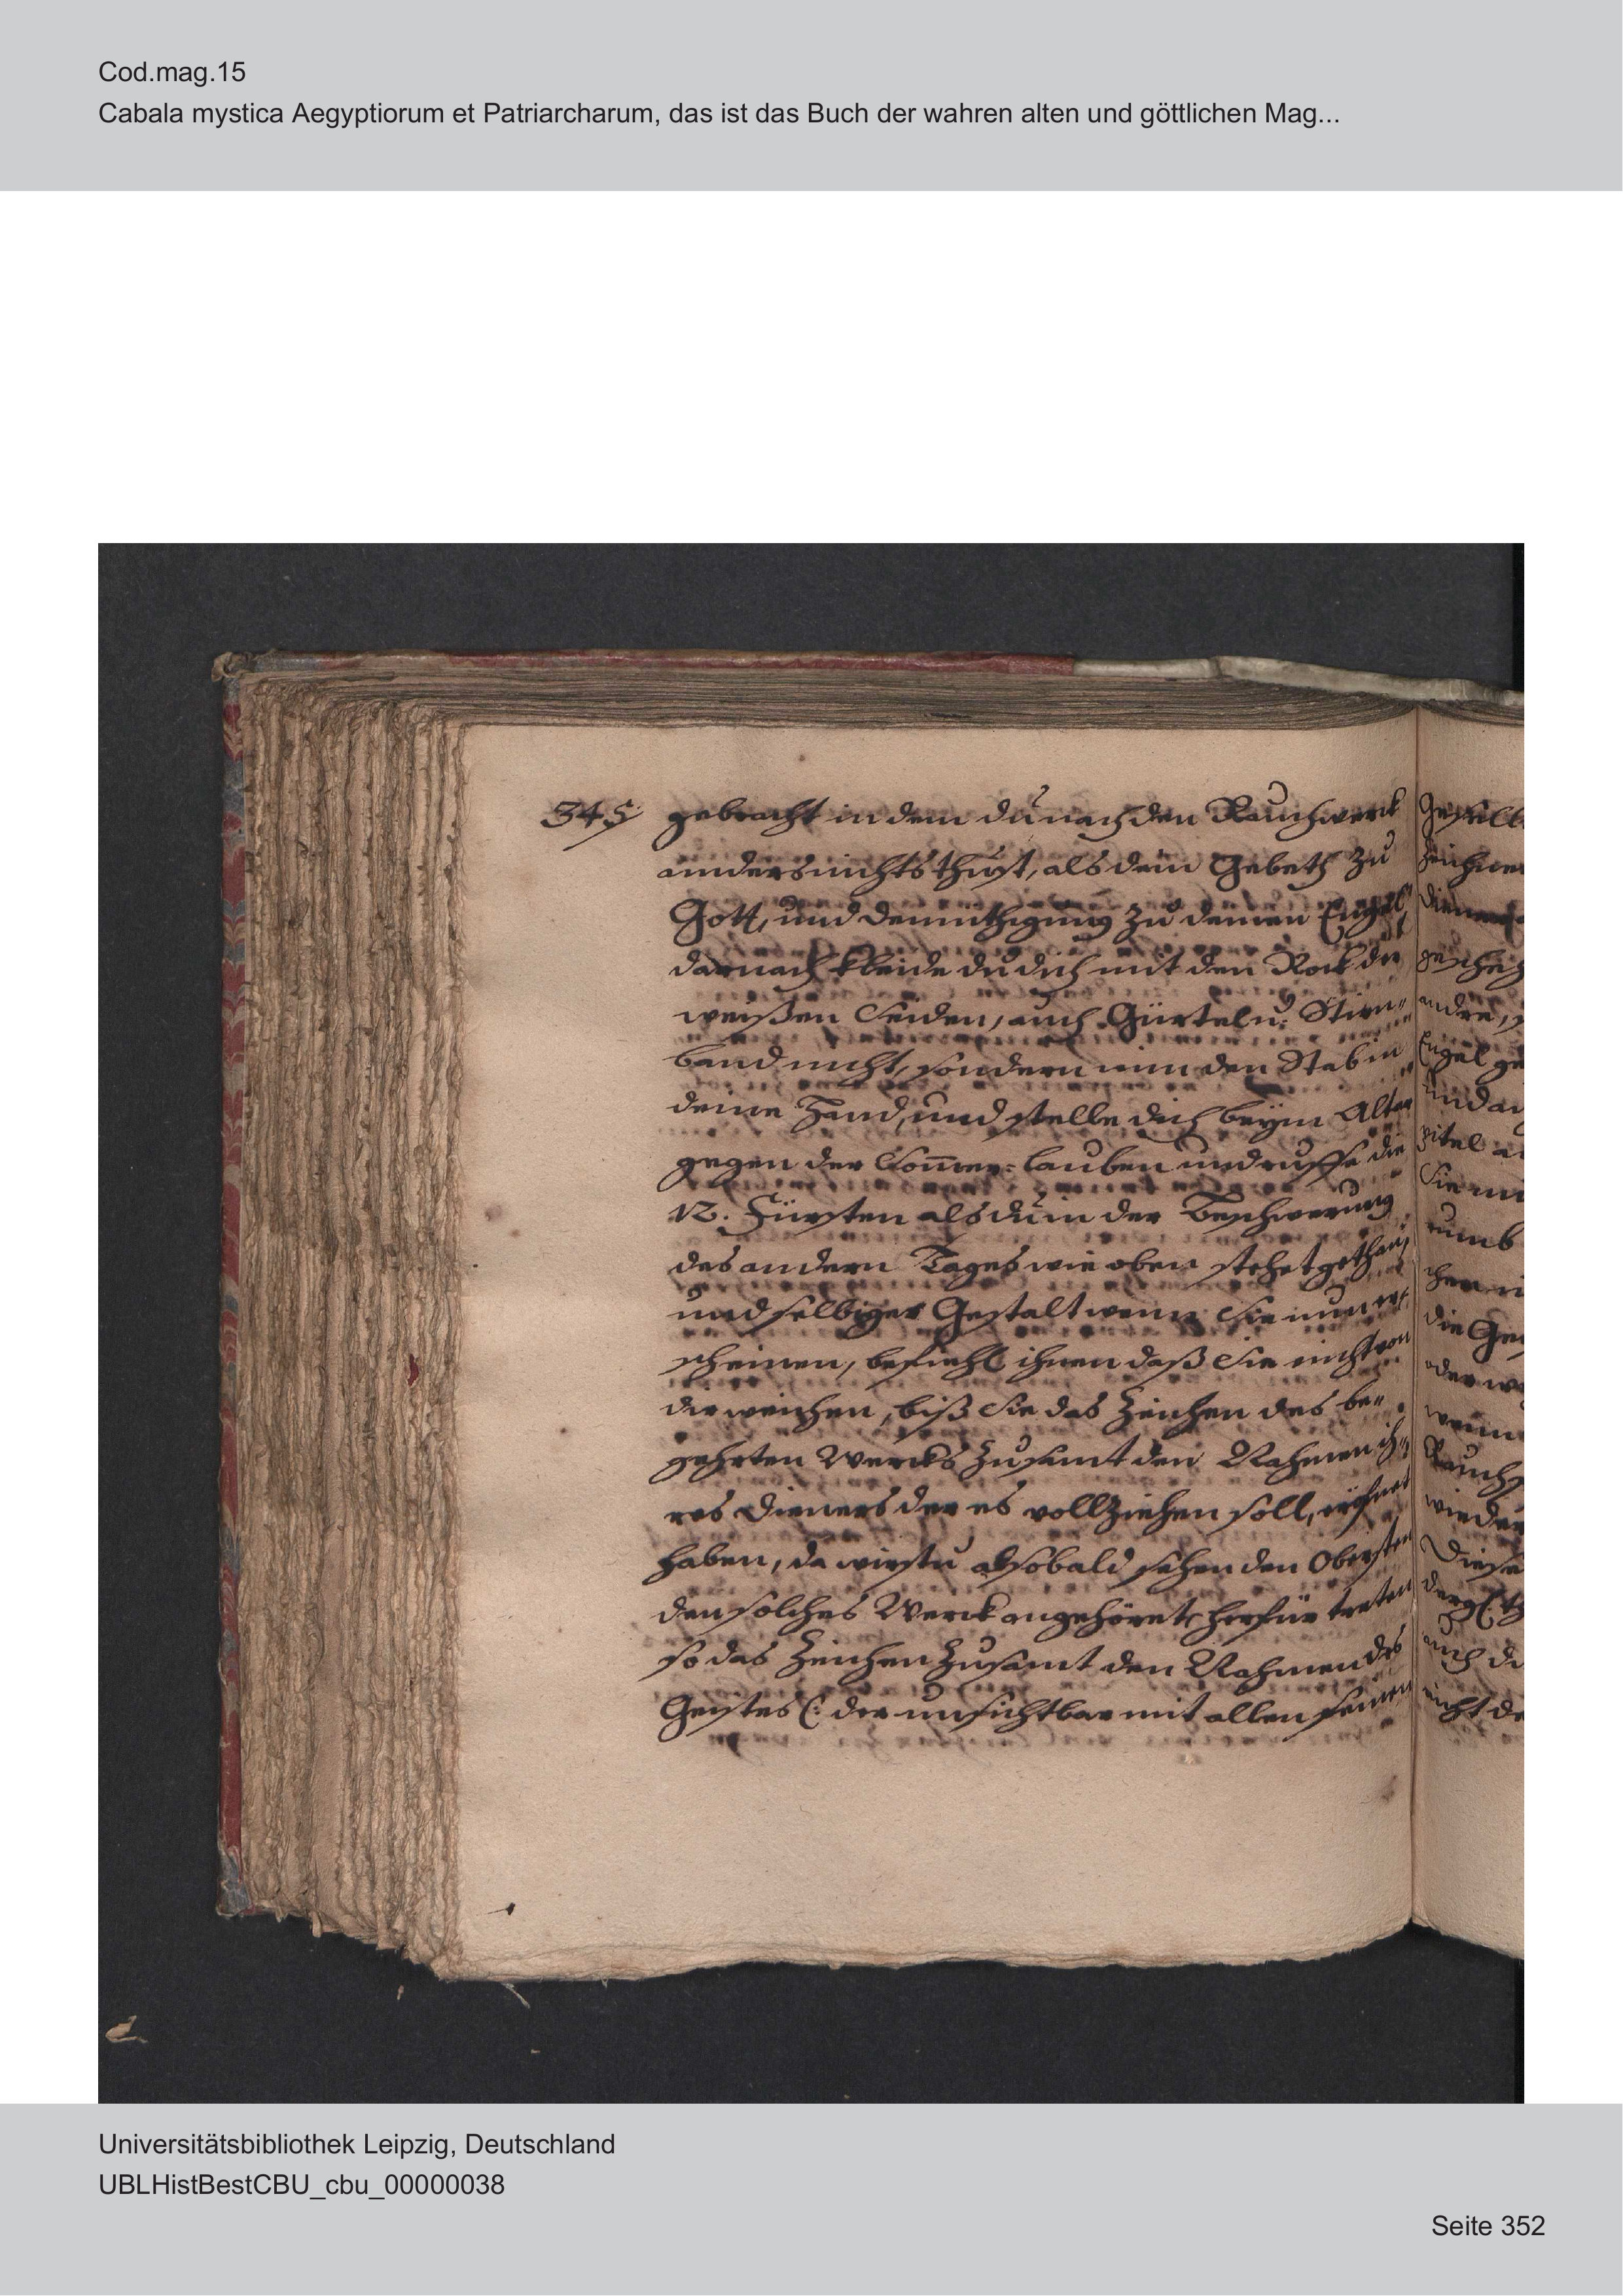 Cod.mag.15
Cabala mystica Aegyptiorum et Patriarcharum, das ist das Buch der wahren alten und göttlichen Mag...
345 gebracht in dem du nach den Rauchwerck
anders nichts thust, als dein Gebeth zu
Gott, und demüthigung zu deinen Engel,
darnach kleide du dich mit den Rock der
weißen Seiden, auch Gürtel u. Stirn-
band nicht, sondern nim den Stab in
deine Hand, und stelle dich beym Altar
gegen der Som̄er-lauben und ruffe die
12. Fürsten als du in der Beschwerung
des andern Tages wie oben stehet gethan,
und selbiger Gestalt wenn Sie nun er-
scheinen, befiehl ihnen daß Sie nicht von
dir weichen, biß Sie das Zeichen des be-
gehrten Wercks zusamt den Nahmen ih-
res Dieners der es vollziehen soll, eröfnet
haben, da wirstu alsobald sehen den Obersten
den solches Werck angehöret herfür treten
so das Zeichen zusamt den Nahmen des
Geistes (: der unsichtbar mit allen seinen
Universitätsbibliothek Leipzig, Deutschland
UBLHistBestCBU_cbu_00000038
Seite 352